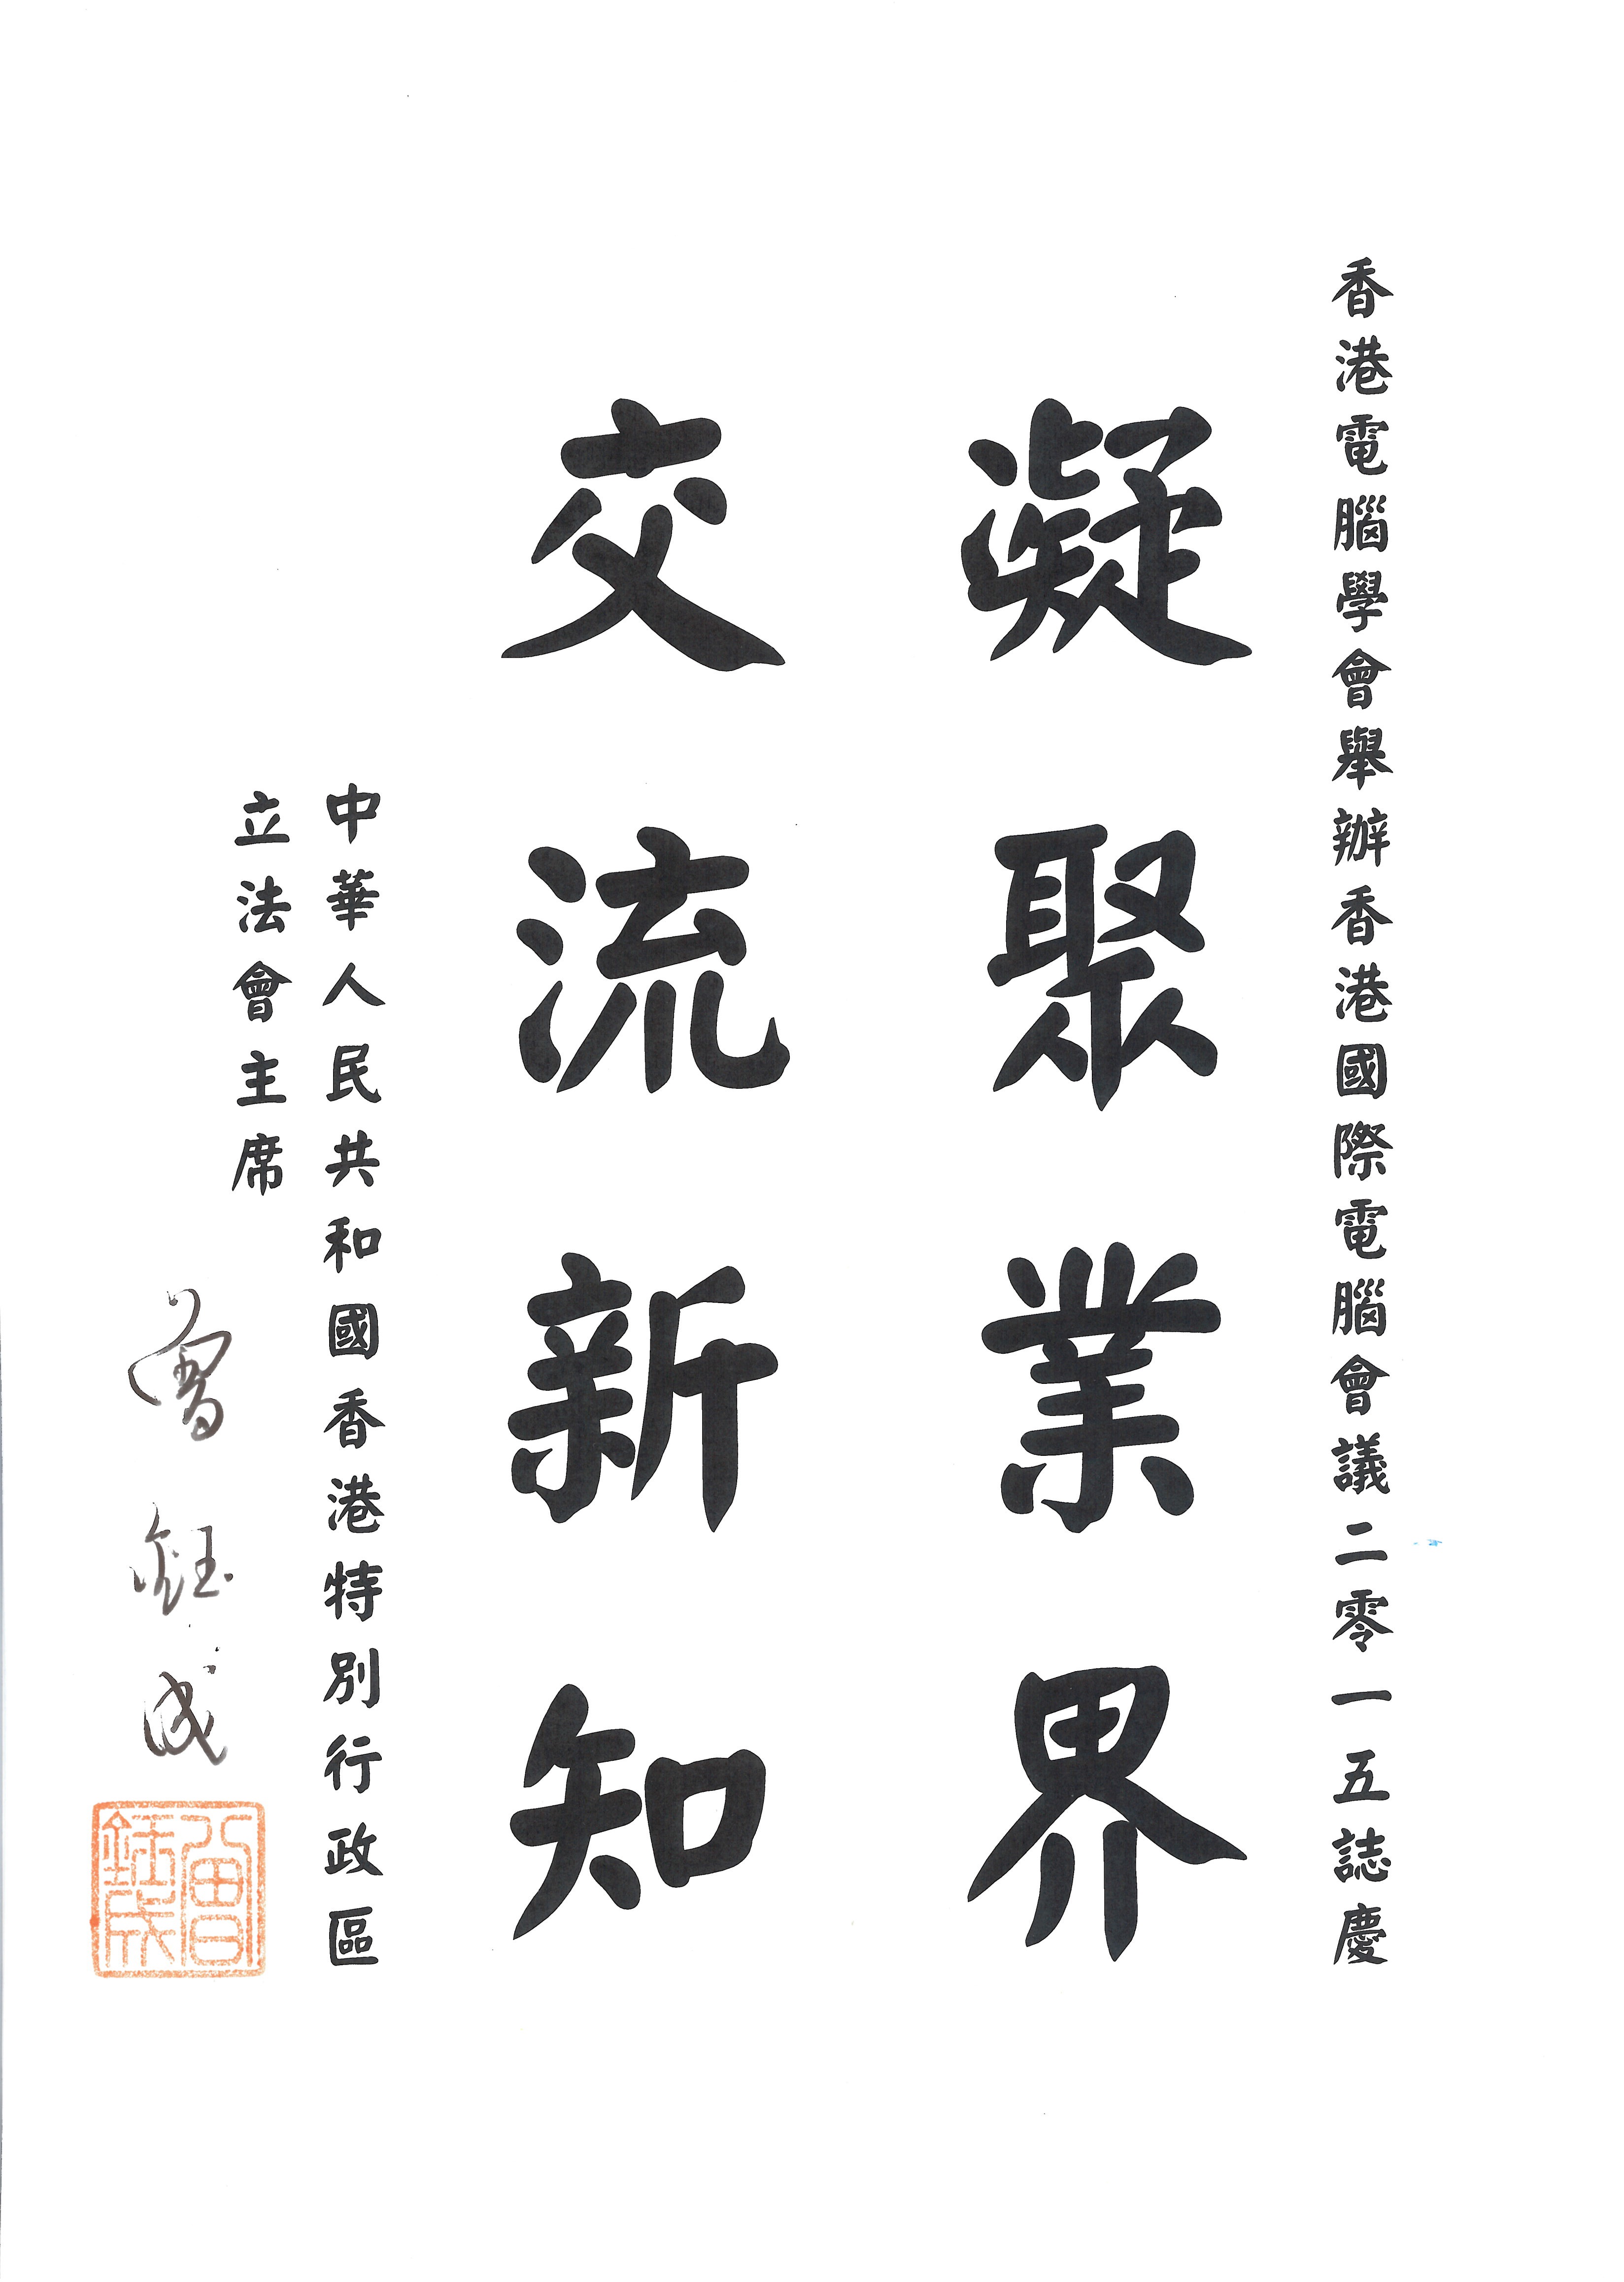 香港電腦學會舉辦香港國際電腦會議二零一五誌慶
凝聚業界
交流新知
中華人民共和國香港特別行政區
立法會主席
曾鈺成
曾鈺成